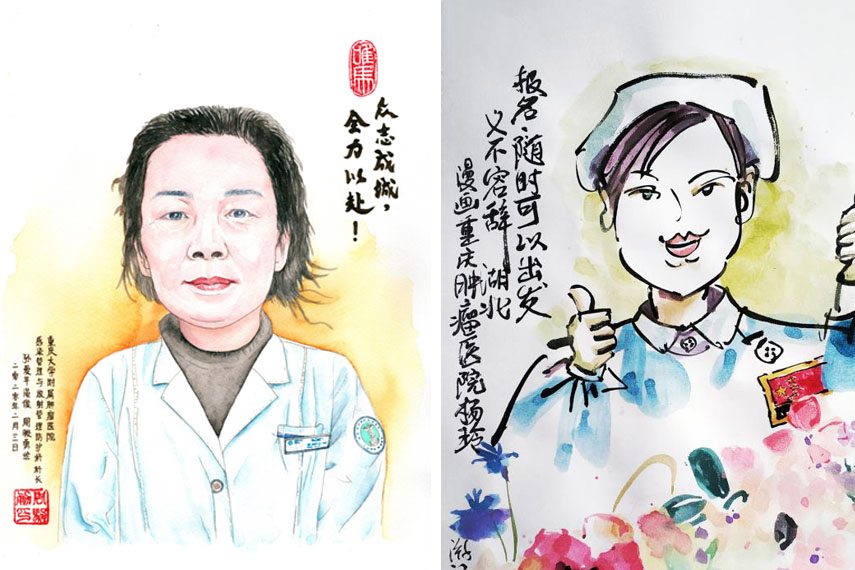 众志成城，
全力以赴！
重庆大学附属肿瘤医院
感染管理与放射管理防护科科长
二〇二〇年二月三日
报名、随时可以出发
义不容辞 湖北
漫画重庆肿瘤医院杨玲